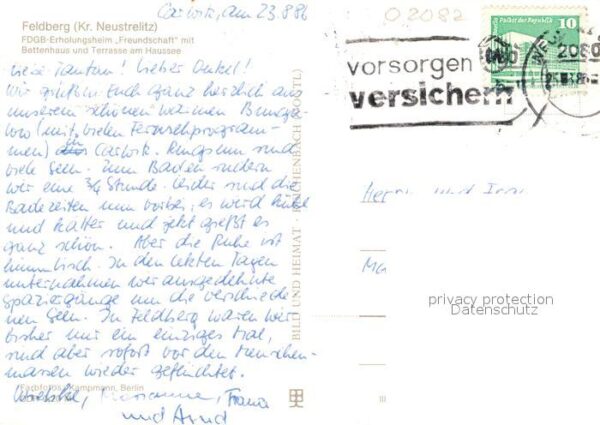 Carwitz, am 23.8.86
Feldberg (Kr. Neustrelitz)
FDGB-Erholungsheim „Freundschaft" mit
Bettenhaus und Terrasse am Haussee
Liebe Tantum! Lieber Onkel!
Wir grüßen Euch ganz herzlich aus
unserem schönen warmen Bunga-
low (mit vielen Fernsehprogram-
men) in Carwitz. Ringsum sind
viele Seen. Zum Baden rudern
wir eine 3/4 Stunde. Leider sind die
Badezeiten nun vorbei, es wird kühl
und kälter und jetzt gießt es
ganz schön. Aber die Ruhe ist
himmlisch. In den letzten Tagen
unternahmen wir ausgedehnte
Spaziergänge um die verschiede-
nen Seen. In Feldberg waren wir
bisher nur ein einziges Mal,
sind aber sofort vor den Menschen-
massen wieder geflüchtet.
Farbfotos: Kampmann, Berlin
Marianne,
und Arnd
BILD UND HEIMAT REICHENBACH (VOGTL)
0 2082
Palast der Republik
10
DDR
2080
vorsorgen
versichern
Herrn und
Ma
privacy protection
Datenschutz